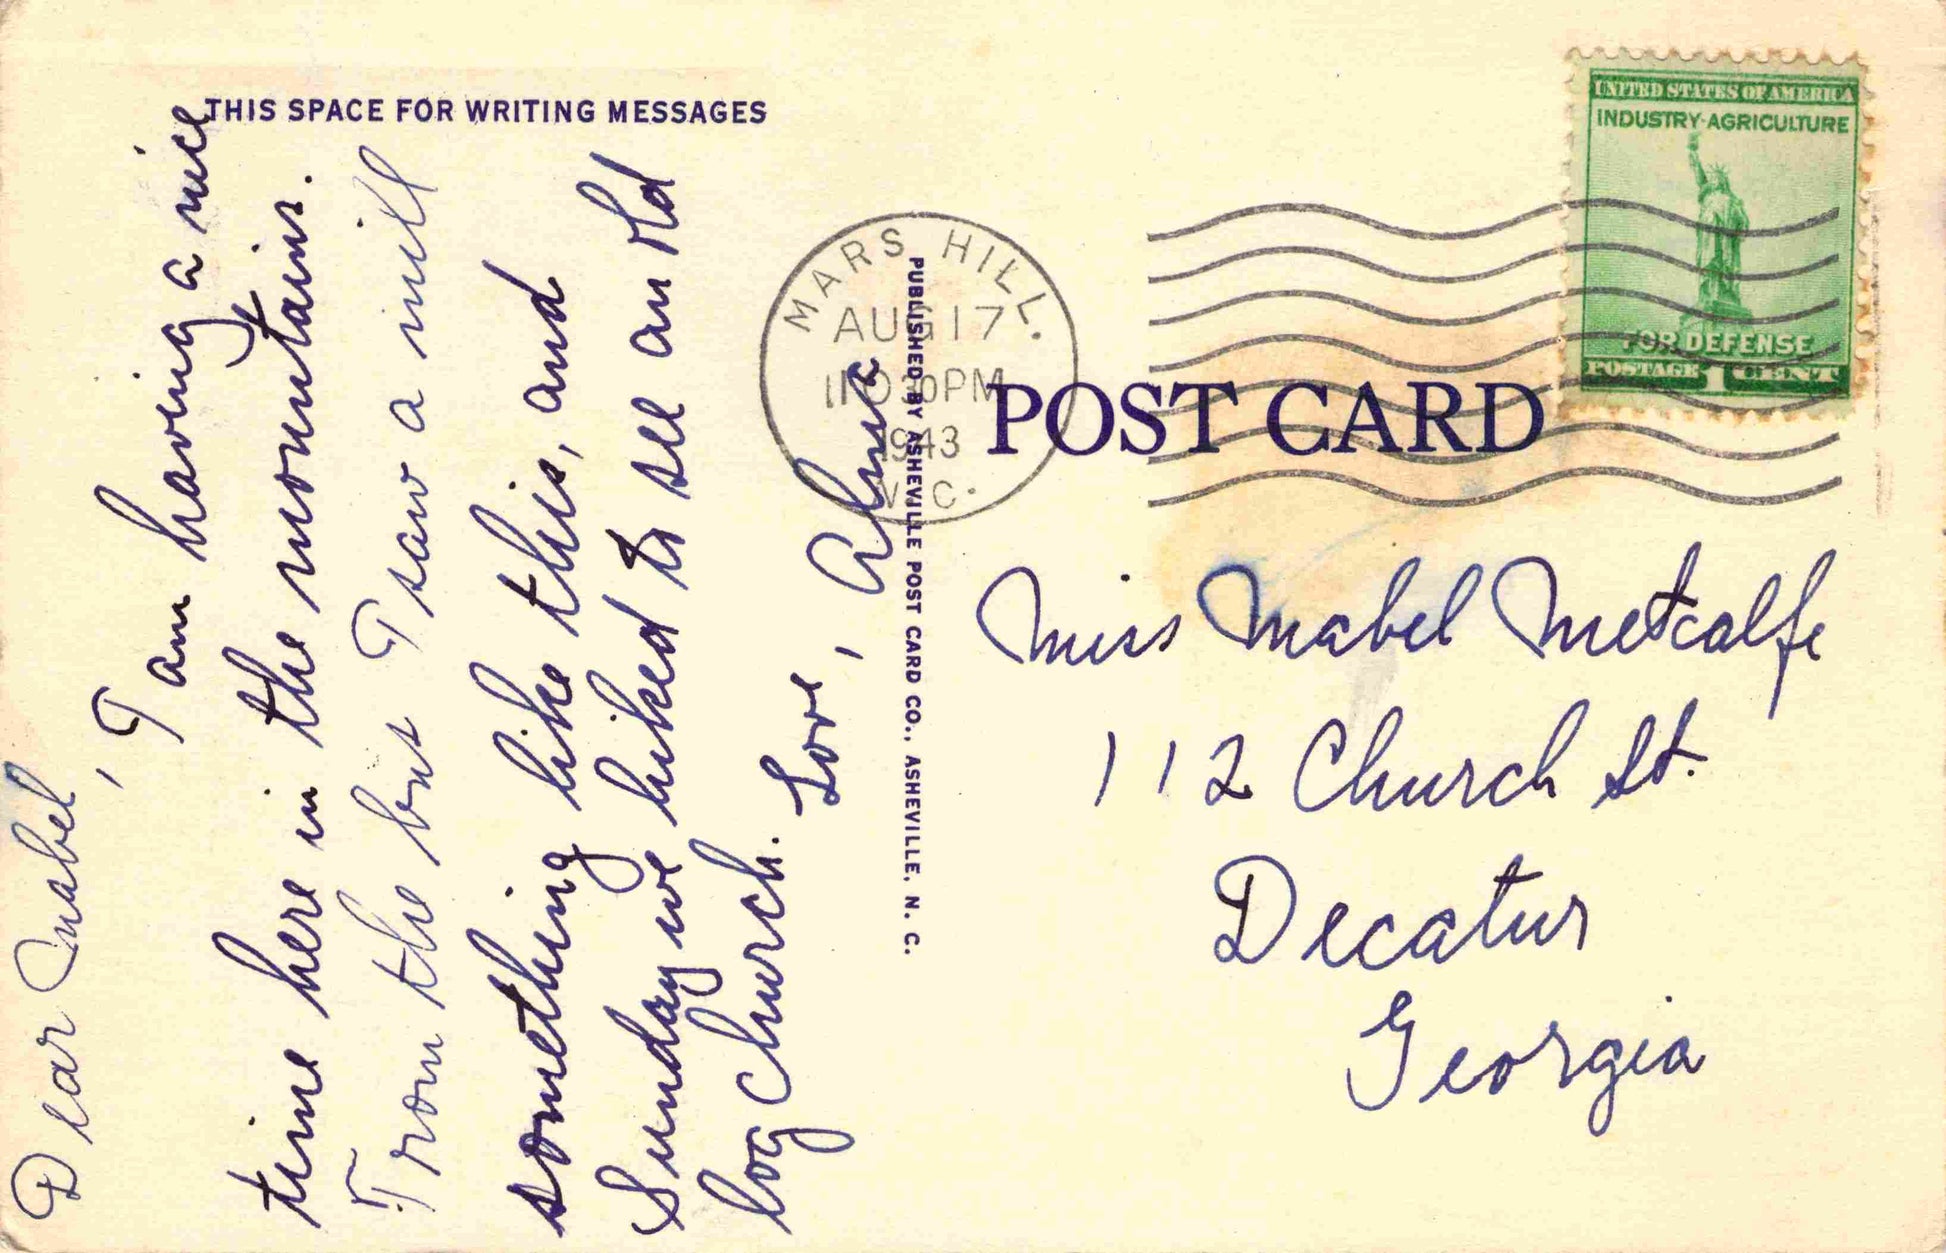 THIS SPACE FOR WRITING MESSAGES
Dear Mabel,
I am having a nice
time here in the mountains.
From the bus I saw a mill
something like this, and
Sunday we hiked to see an old
log church.
Love, Alma
PUBLISHED BY ASHEVILLE POST CARD CO., ASHEVILLE, N. C.
MARS HILL.
AUG 17
PM
1943
N.C.
POST CARD
UNITED STATES OF AMERICA
INDUSTRY·AGRICULTURE
FOR DEFENSE
POSTAGE 1 CENT
Miss Mabel Metcalfe
112 Church St.
Decatur
Georgia